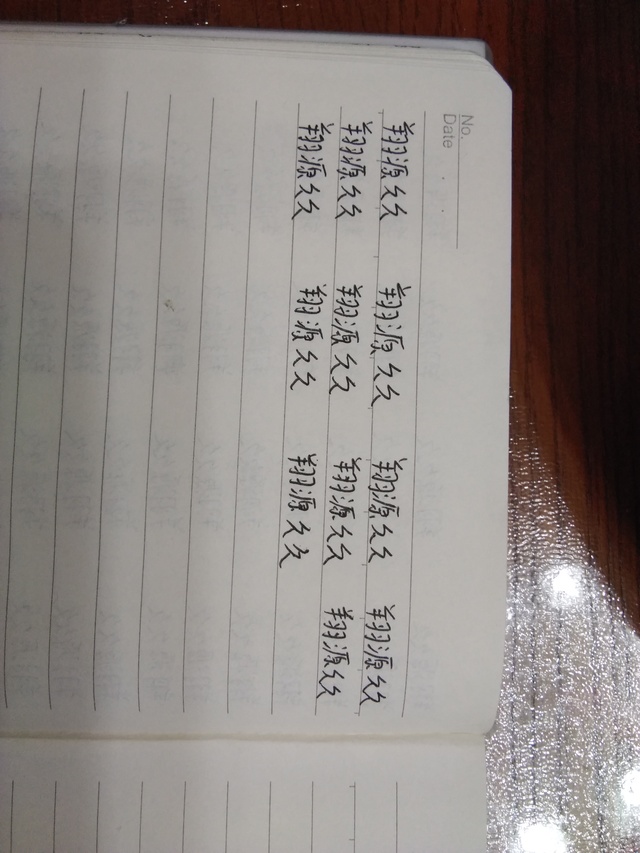 No.
Date
翔源久久 翔源久久 翔源久久 翔源久久
翔源久久 翔源久久 翔源久久 翔源久久
翔源久久 翔源久久 翔源久久